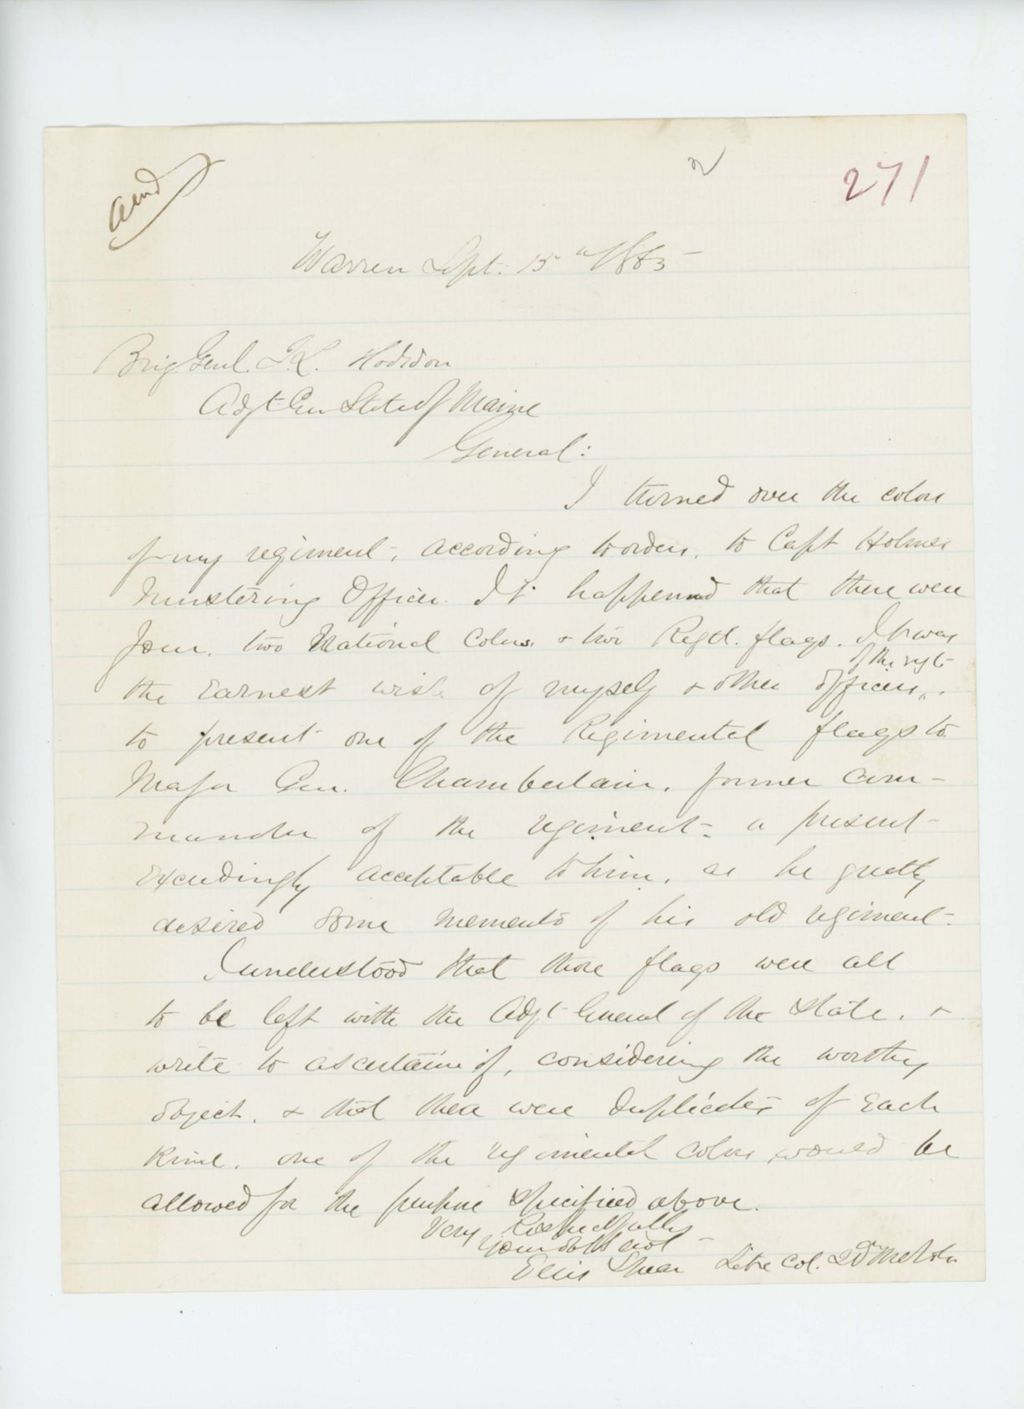 and
2
271
Warren Sept. 15th 1865
Brig Genl. J. L. Hodsdon
Adjt Gen State of Maine
General:
I turned over the colors
of my regiment, according to orders, to Capt Holmes
Mustering Officer. It happened that there were
four, two National Colors & two Regtl. flags. It was
the earnest wish of myself & other officers of the regt.
to present one of the Regimental flags to
Major Gen. Chamberlain, former com-
mander of the regiment - a present
exceedingly acceptable to him, as he greatly
desired some memento of his old regiment.
I understood that those flags were all
to be left with the Adjt General of the State, &
write to ascertain if, considering the worthy
object, & that there were duplicates of each
kind, one of the regimental colors would be
allowed for the purpose specified above.
Very Respectfully
Your obt servt
Ellis Spear Late Col. 20th Me Vols